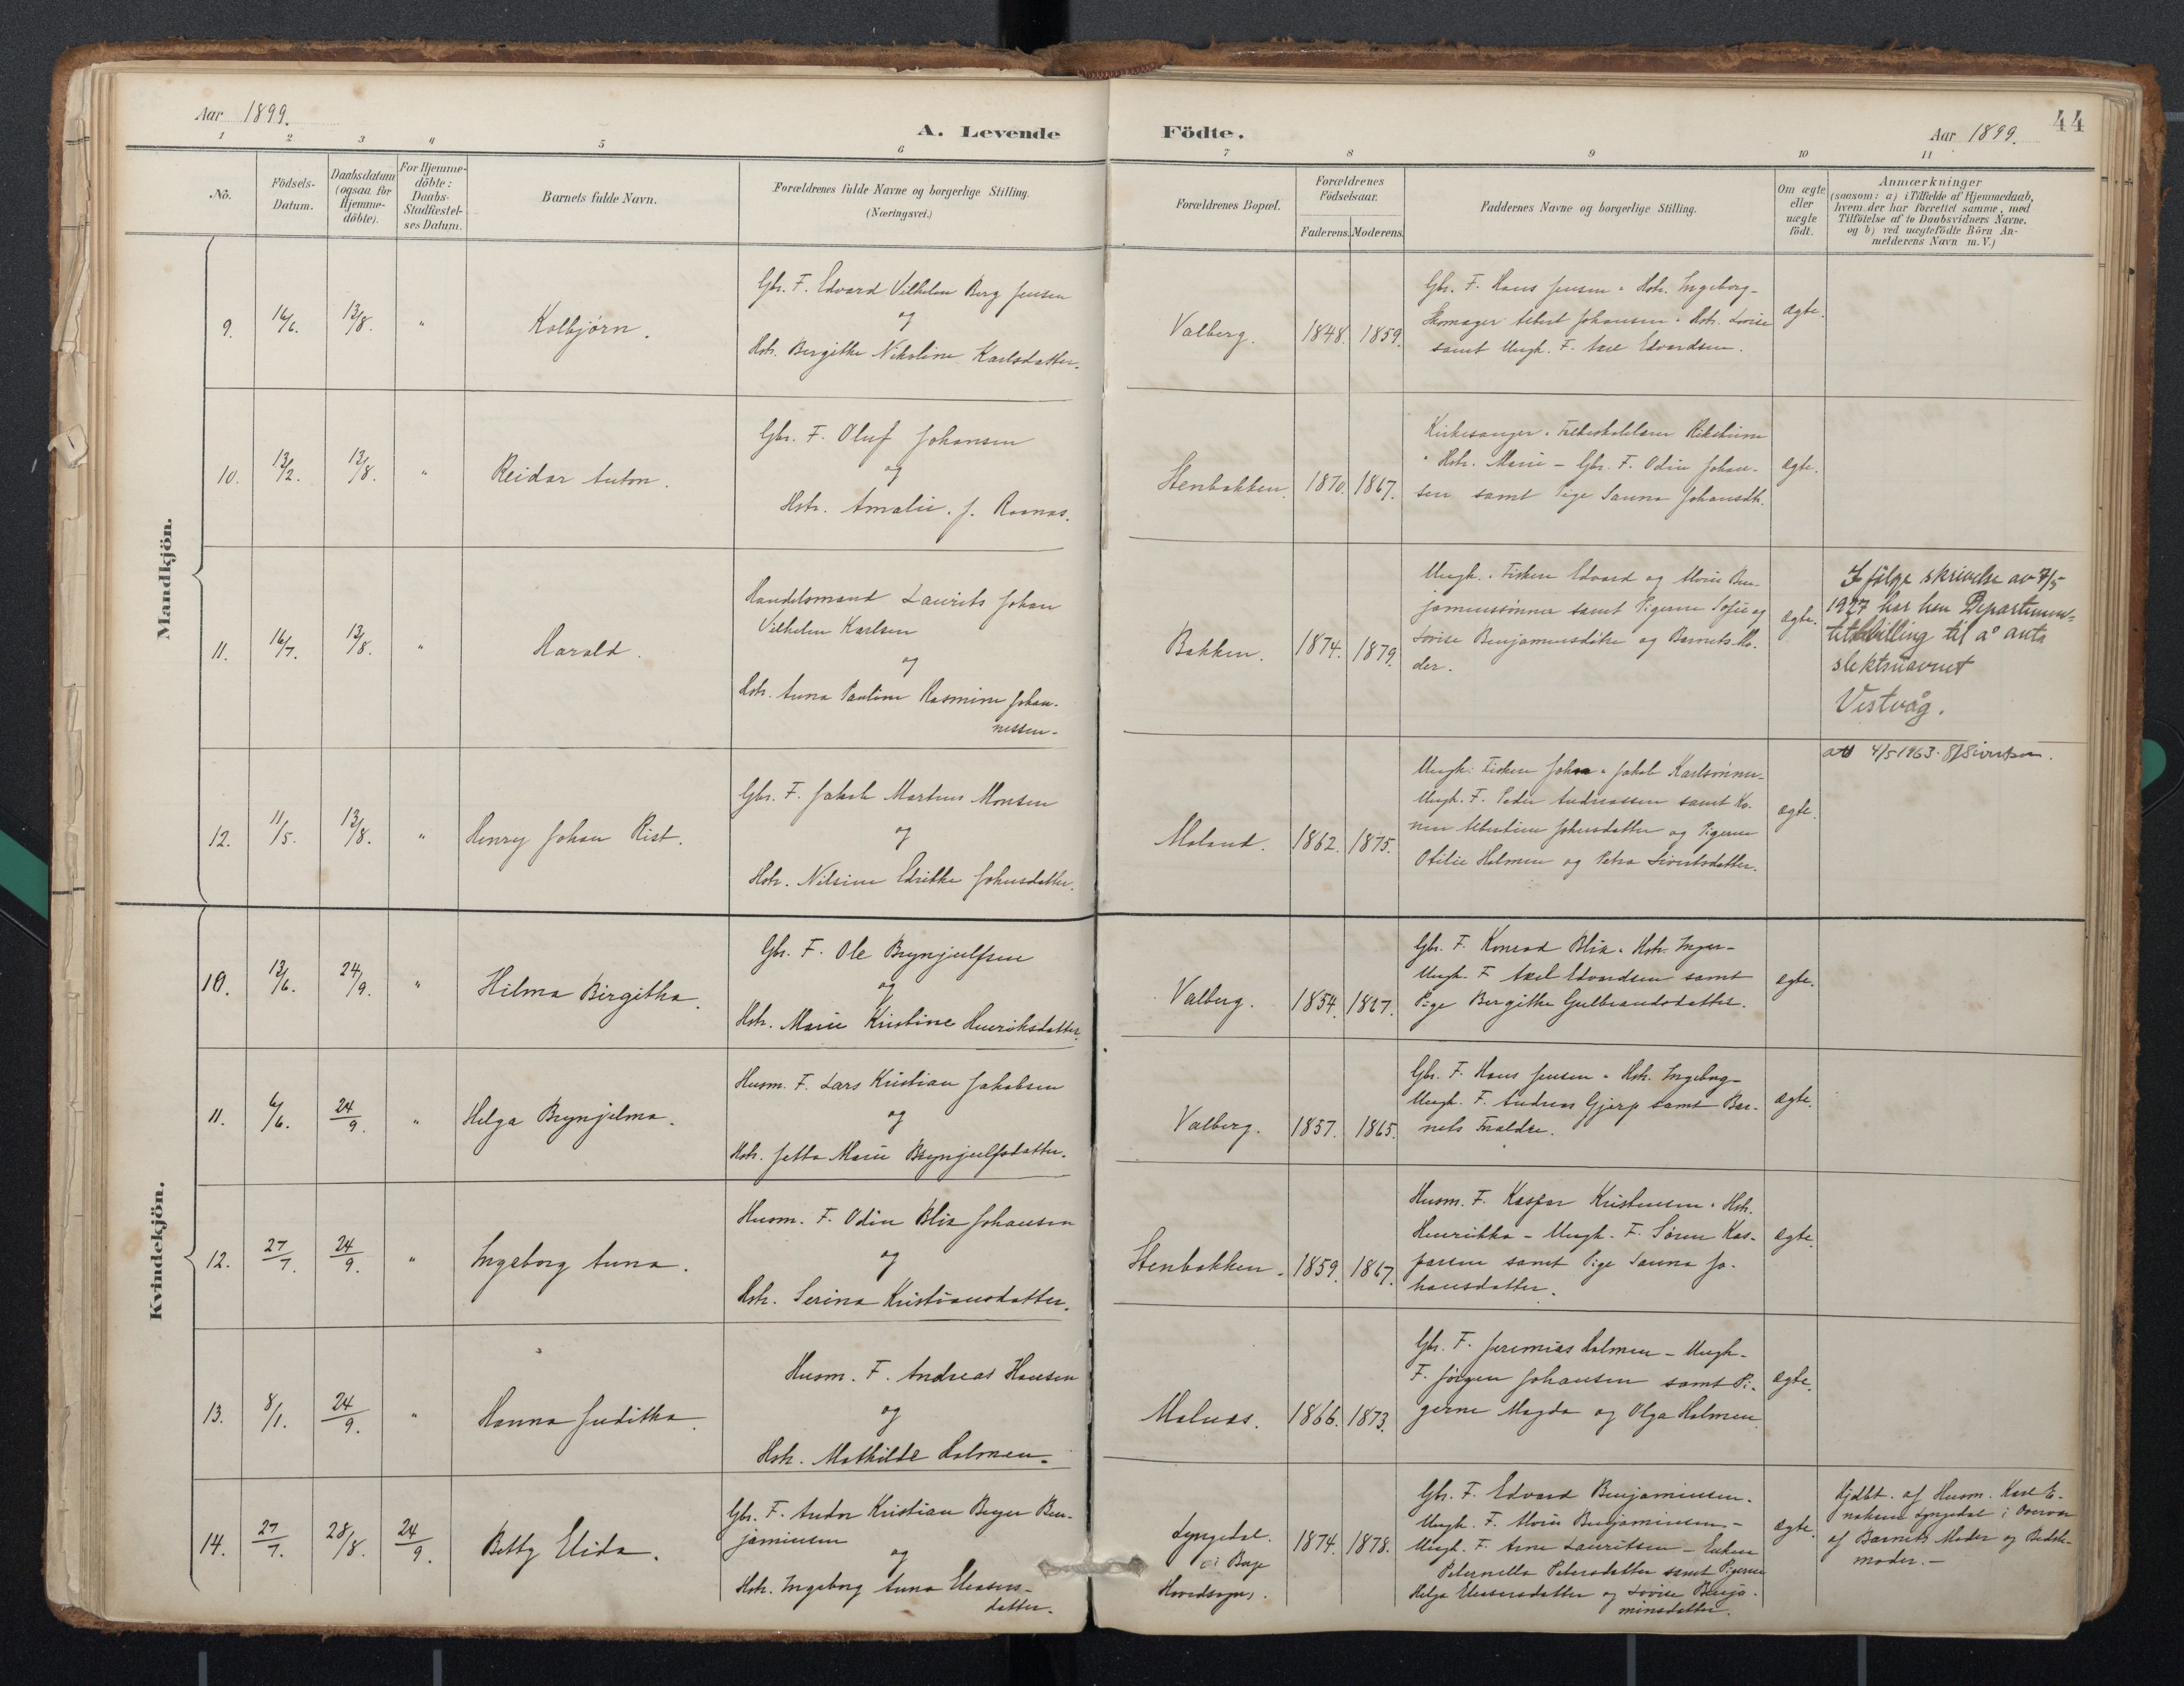 Aar 1899.
A. Levende Födte.
Aar 1899.
44
1 2 3 4 5 6 7 8 9 10 11
No.
Födsels-Datum.
Daabsdatum (ogsaa for Hjemme-döbte).
For Hjemme-döbte: Daabs-Stadfæstel-ses Datum.
Barnets fulde Navn.
Forældrenes fulde Navne og borgerlige Stilling.
(Næringsvei.)
Forældrenes Bopæl.
Forældrenes Födselsaar.
Faderens. Moderens.
Faddernes Navne og borgerlige Stilling.
Om ægte eller uægte födt.
Anmærkninger
(saasom: a) i Tilfælde af Hjemmedaab,
hvem der har forrettet samme, med
Tilföielse af to Daabsvidners Navne.
og b) ved uægtefödte Börn An-
melderens Navn m.V.)
Mandkjön.
9. 16/6. 13/8. " Kolbjørn.
Gbr. F. Edvard Vilhelm Berg Jensen
og
Hstr. Bergitte Nikoline Karlsdatter.
Valberg. 1848. 1859.
Gbr. F. Hans Jensen " Hstr. Ingeborg -
Skomager Albert Johansen " Hstr. Lovise
samt Ungk. F. Axel Edvardsen.
ægte.
10. 13/2. 13/8. " Reidar Anton.
Gbr. F. Oluf Johansen
og
Hstr. Amalie. f. Ramnas.
Stenbakken. 1870. 1867.
Kirkesanger
" Hstr. Marie - Gbr. F. Odin Johan-
sen samt Pige Sanna Johansdtr.
ægte.
11. 16/7. 13/8. " Harald.
Handelsmand Laurits Johan
Vilhelm Karlsen
og
Hstr. Anna Pauline Rasmine Johan-
nessen.
Bakken. 1874. 1879.
Ungk. Fiskere Edvard og Moris Ben-
jaminssønner samt Pigerne Sofie og
Lovise Benjaminsdøtre og Barnets Mo-
der.
ægte.
Ifølge skrivelse av 7/5
1927 har hen Departemen-
tets billing til å anta
slektsnavnet
Vestvåg.
att 4/5 1963.
12. 11/5. 13/8. " Henry Johan Rist.
Gbr. F. Jakob Martinus Monsen
og
Hstr. Nilsine Edrikke Johnsdatter.
Maland. 1862. 1875.
Ungk. Fiskere Johan " Jakob Karlsønner-
Ungk. F. Peder Andreassen samt Ko-
nen Albertine Johnsdatter og Pigerne
Otilie Holmen og Petra Sivertsdatter.
ægte.
Kvindekjön.
10. 13/6. 24/9. " Hilma Birgitha.
Gbr. F. Ole Brynjulfsen
og
Hstr. Marie Kristine Henriksdatter.
Valberg. 1854. 1867.
Gbr. F. Konrad Blix " Hstr. Inger -
Ungk. F. Axel Edvardsen samt
Pige Bergitte Gulbrandsdatter.
ægte.
11. 6/6. 24/9. " Helga Brynjelma.
Husm. F. Lars Kristian Jakobsen
og
Hstr. Jetta Marie Brynjulfsdatter.
Valberg. 1857. 1865.
Gbr. F. Hans Jensen " Hstr. Ingeborg -
Ungk. F. Andreas Gjerp samt Bar-
nets Forældre.
ægte.
12. 27/7. 24/9. " Ingeborg Anna.
Husm. F. Odin Blix Johansen
og
Hstr. Serina Kristiansdatter.
Stenbakken. 1859. 1867.
Husm. F. Kaspar Kristensen " Hstr.
Henrikka - Ungk. F. Søren Kas-
parsen samt Pige Sanna Jo-
hansdatter.
ægte.
13. 8/1. 24/9. " Hanna Juditha.
Husm. F. Andreas Hansen
og
Hstr. Mathilde Holmen.
Malnas. 1866. 1873.
Gbr. F. Jeremias Holmen - Ungk.
F. Jørgen Johansen samt Pi-
gerne Magda og Olga Holmen
ægte.
14. 27/7. 28/8. 24/9. Betty Elida.
Gbr. F. Andor Kristian Beyer Ben-
jaminsen
og
Hstr. Ingeborg Anna Eleasers-
datter.
Lyngedal.
i Borge
Hovedsogn.
1874. 1878.
Gbr. F. Edvard Benjaminsen.
Ungk. F. Moris Benjaminsen -
Ungk. F. Arne Lauritsen - Enken
Peternella Petersdatter samt Pigerne
Helga Eleasersdatter og Lovise Benja-
minsdatter.
ægte.
Hjdbt. af Husm. Karl E-
Lyngedal i Overvær
af Barnets Moder og Bedste-
moder. -